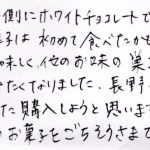 側にホワイトチョコレートで
子は初めて食べたかも
味しく他のお味の菓
たくなりました.長野
た購入しようと思いま
お菓子をごちそうさまで